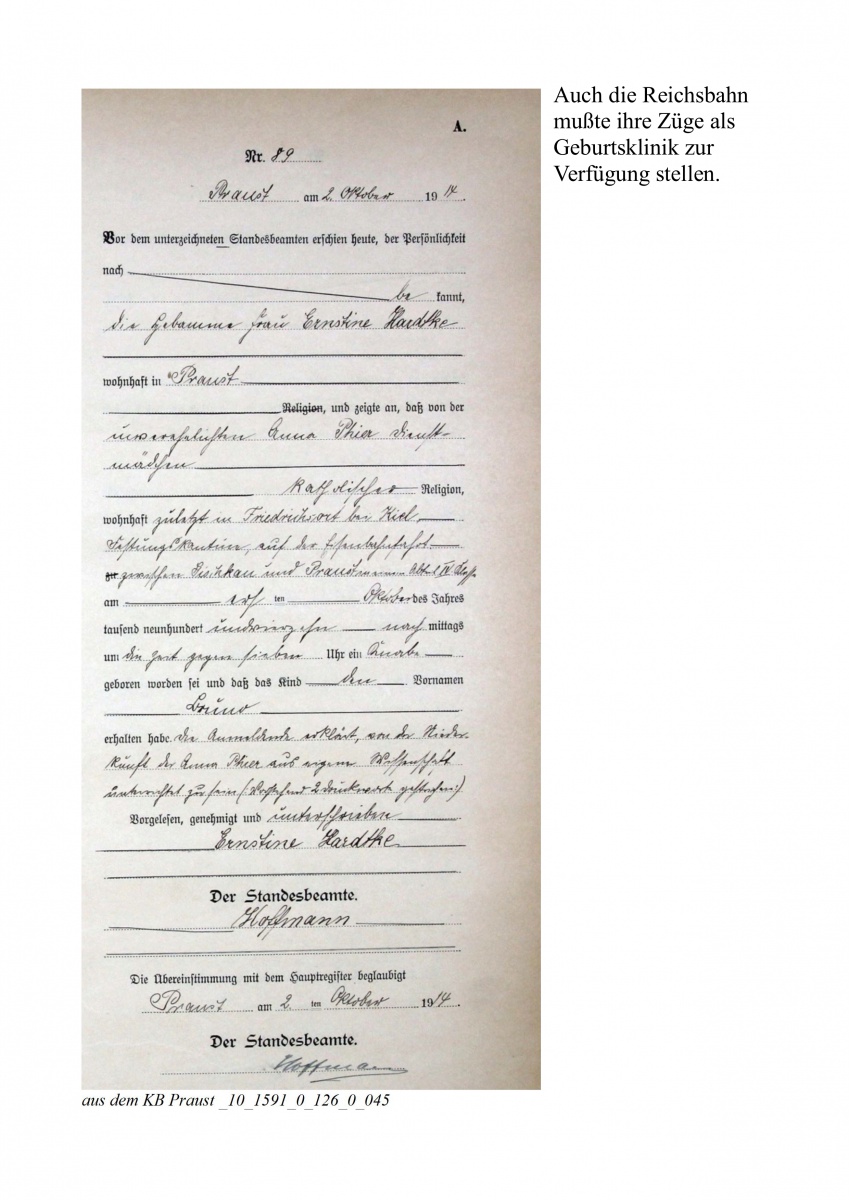 A.
Nr. 89
Praust am 2. Oktober 1914.
Vor dem unterzeichneten Standesbeamten erschien heute, der Persönlichkeit
nach
be kannt,
die Hebamme Frau Ernstine Hardtke
wohnhaft in Praust
Religion, und zeigte an, daß von der
unverehelichten Anna Dienst-
mädchen
katholischer Religion,
wohnhaft zuletzt in Friedrichsort bei Kiel,
Festungskantine, auf der Eisenbahnfahrt
zu zwischen und Praust Abteil IV Klasse
am ersten Oktober des Jahres
tausend neunhundert undvierzehn nach mittags
um die Zeit gegen sieben Uhr ein Knabe
geboren worden sei und daß das Kind den Vornamen
Bruno
erhalten habe. Die Anmeldende erklärt, von der Nieder-
kunft der Anna aus eigener Wissenschaft
unterrichtet zu sein (Vorstehend 2 Druckworte gestrichen)
Vorgelesen, genehmigt und unterschrieben
Ernstine Hardtke
Der Standesbeamte.
Hoffmann
Die Übereinstimmung mit dem Hauptregister beglaubigt
Praust am 2. ten Oktober 1914.
Der Standesbeamte.
Hoffmann
Auch die Reichsbahn
mußte ihre Züge als
Geburtsklinik zur
Verfügung stellen.
aus dem KB Praust _10_1591_0_126_0_045